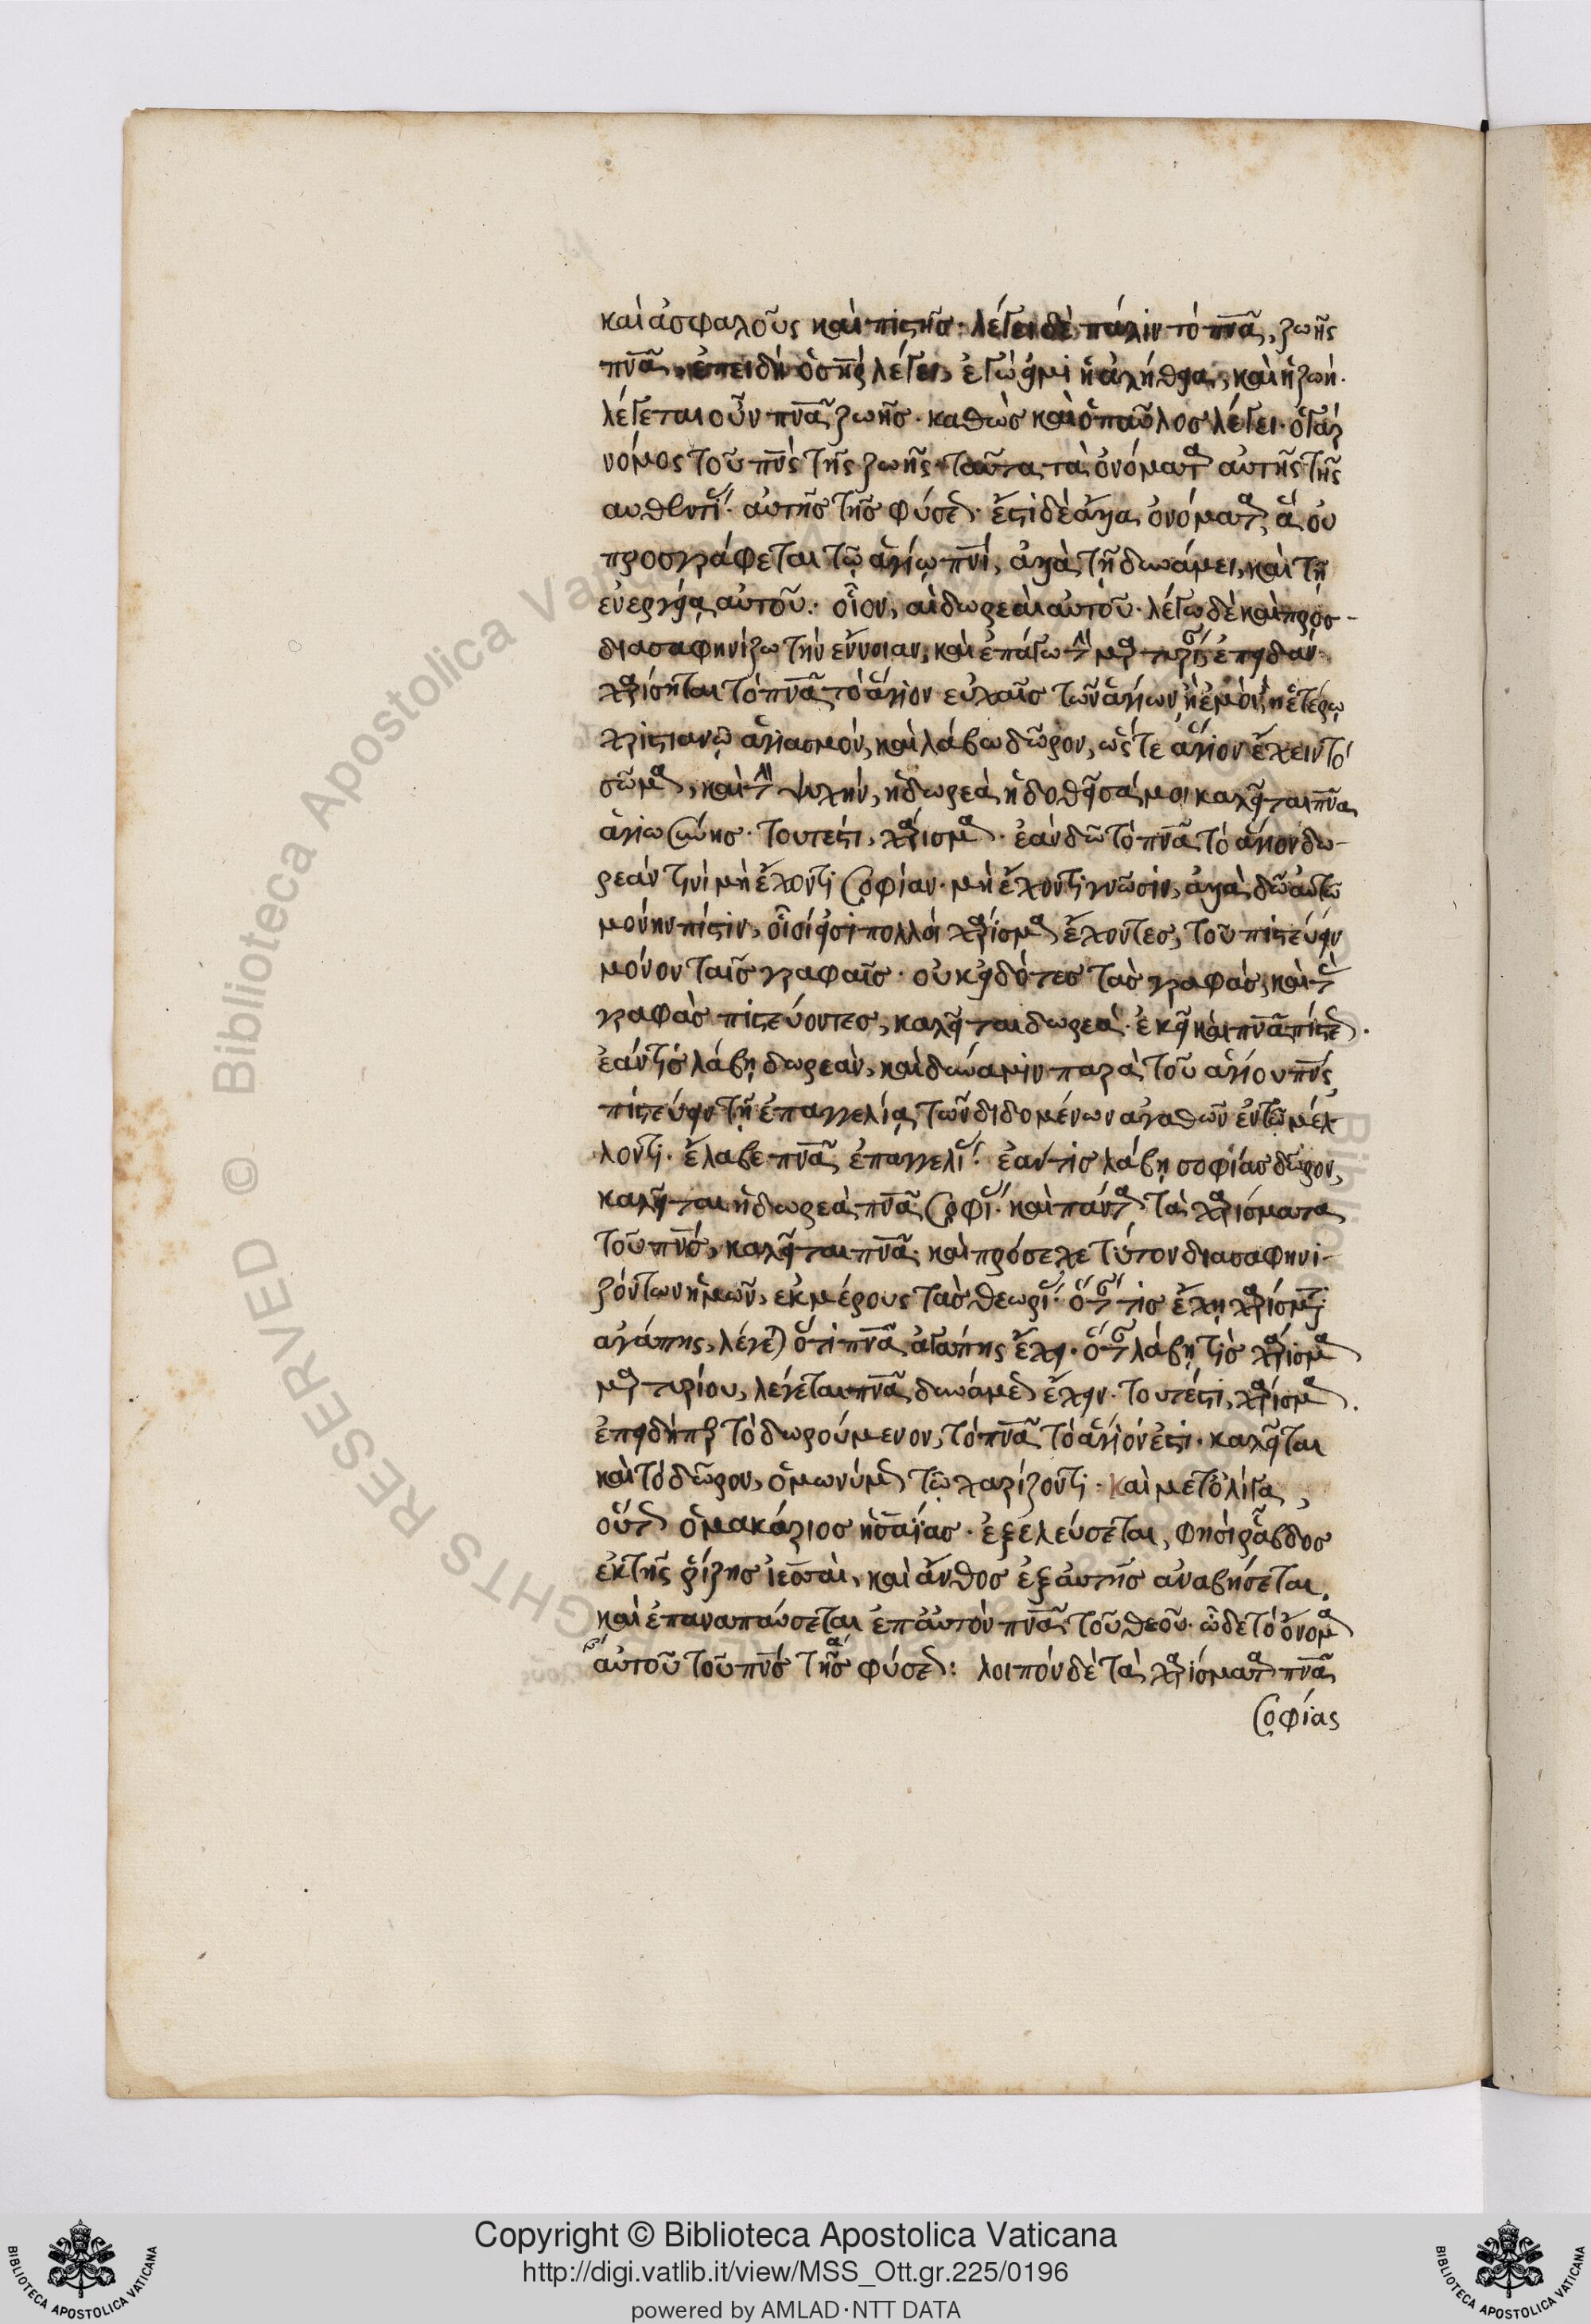 καὶ ἀσφαλοῦς καὶ πιστῆς· λέγει δὲ πάλιν τὸ πνᾶ, ζωῆς
πνᾶ, ἐπειδὴ ὁ σηρ λέγει, ἐγώ εἰμι ἡ ἀλήθεια, καὶ ἡ ζωή·
λέγεται οὖν πνᾶ ζωῆς· καθὼς καὶ ὁ παῦλος λέγει· ὁ γὰρ
νόμος τοῦ πνς τῆς ζωῆς· ταῦτα τὰ ὀνόματα αὐτῆς τῆς
αυθεντίας· αὐτῆς τῆς φύσεως· ἔστι δὲ ἄλλα ὀνόματα, ἃ οὐ
προσγράφεται τῷ ἁγίῳ πνι, ἀλλὰ τῇ δυνάμει, καὶ τῇ
ἐνεργεία αὐτοῦ· οἷον, αἱ δωρεαὶ αὐτοῦ· λέγω δὲ καὶ προσ-
διασαφηνίζω τὴν ἔννοιαν, καὶ ἐπάγω τὴν μαρτυρίαν· ἐπειδὰν
χαρίσηται τὸ πνᾶ τὸ ἅγιον εὐχαῖς τῶν ἁγίων ἢ ἐμοὶ, ἢ ἑτέρῳ
χριστιανῷ ἁγιασμὸν, καὶ λάβω δῶρον, ὥστε ἅγιον ἔχειν τὸ
σῶμα, καὶ τὴν ψυχήν, ἡ δωρεὰ ἡ δοθεῖσά μοι καλεῖται πνᾶ
ἁγιωσύνης· τουτέστι, χάρισμα· ἐὰν δῶ τὸ πνᾶ τὸ ἅγιον δω-
ρεάν τινι μὴ ἔχοντι σοφίαν· μὴ ἔχοντι γνῶσιν, ἀλλὰ δῶ αὐτῷ
μόνην πίστιν, οἷοί εἰσι πολλοὶ χάρισμα ἔχοντες, τοῦ πιστεύειν
μόνον ταῖς γραφαῖς· οὐκ εἰδότες τὰς γραφὰς, καὶ τὰς
γραφὰς πιστεύοντες, καλεῖται δωρεὰ ἐκεῖ καὶ πνᾶ πίστεως.
ἐάν τις λάβῃ δωρεὰν, καὶ δύναμιν παρὰ τοῦ ἁγίου πνς
πιστεύειν τῇ ἐπαγγελίᾳ τῶν διδομένων ἀγαθῶν ἐν τῷ μέλ
λοντι· ἔλαβε πνᾶ ἐπαγγελίας· ἐάν τις λάβῃ σοφίας δῶρον,
καλεῖται ἡ δωρεὰ πνᾶ σοφίας· καὶ πάντα τὰ χαρίσματα
τοῦ πνς, καλεῖται πνᾶ· καὶ πρόσεχε τύπον διασαφηνι-
ζόντων ἡμῶν, ἐκ μέρους τὰς θεωρίας· ὅταν τις ἔχῃ χάρισμα
ἀγάπης, λέγεται ὅτι πνᾶ ἀγάπης ἔχει· ὅταν λάβῃ τις χάρισμα
μαρτυρίου, λέγεται πνᾶ δυνάμεως ἔχειν· τουτέστι, χάρισμα.
ἐπειδήπερ τὸ δωρούμενον, τὸ πνᾶ τὸ ἅγιόν ἐστι· καλεῖται
καὶ τὸ δῶρον, ὁμωνύμως τῷ χαρίζοντι· καὶ μετ ὀλίγα
οὕτως ὁ μακάριος ἡσαΐας· ἐξελεύσεται, φησὶ ῥάβδος
ἐκ τῆς ῥίζης ἰεσσαὶ, καὶ ἄνθος ἐξ αὐτῆς ἀναβήσεται,
καὶ ἐπαναπαύσεται ἐπ αὐτὸν πνᾶ τοῦ θεοῦ· ὧδε τὸ ὄνομα
αὐτοῦ τοῦ πνς τῆς φύσεως: λοιπὸν δὲ τὰ χαρίσματα πνᾶ
σοφίας
Copyright © Biblioteca Apostolica Vaticana
http://digi.vatlib.it/view/MSS_Ott.gr.225/0196
powered by AMLAD·NTT DATA